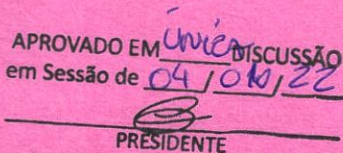 APROVADO EM única DISCUSSÃO
em Sessão de 04 / / 22
PRESIDENTE